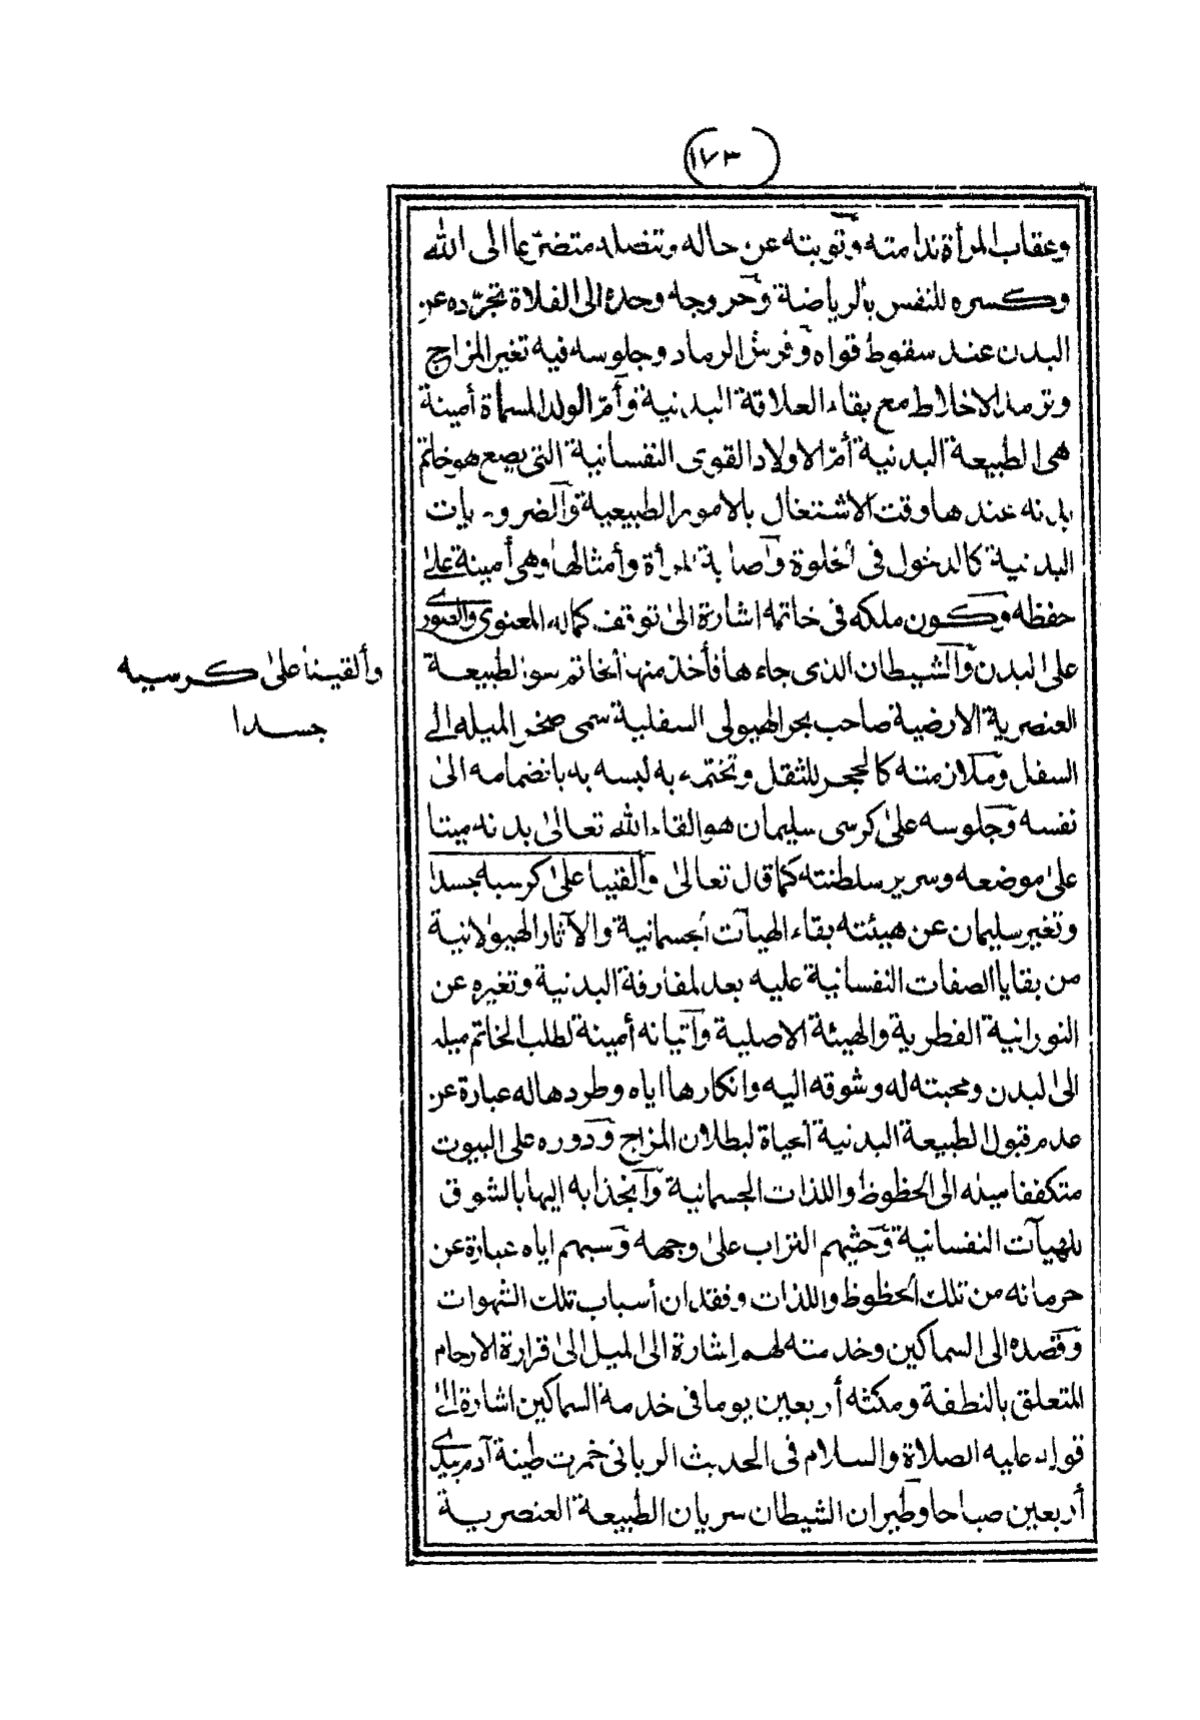 (١٧٣)
وعقاب المرأة ندامته وتوبته عن حاله وتنصله متضرعا الى الله
وكسره للنفس بالرياضة وخروجه وحده الى الفلاة تجرّده عن
البدن عند سقوط قواه وفرش الرماد وجلوسه فيه تغير المزاج
وترمد الاخلاط مع بقاء العلاقة البدنية وأمّ الولد المسماة أمينة
هى الطبيعة البدنية أمّ الاولاد القوى النفسانية التى يضع هو خاتم
بدنه عندها وقت الاشتغال بالامور الطبيعية والضروريات
البدنية كالدخول فى الخلوة واصابة المرأة وأمثالها وهى أمينة على
حفظه وكون ملكه فى خاتمه اشارة الى توقف كماله المعنوى والصورى
على البدن والشيطان الذى جاءها فأخذ منها الخاتم سوء الطبيعة
العنصرية الارضية صاحب بحر الهيولى السفلية سمى صخر الميله الى
السفل وملازمته كالحجر للثقل وتختمه به لبسه به بانضمامه الى
نفسه وجلوسه على كرسى سليمان هو القاء الله تعالى بدنه ميتا
على موضعه وسرير سلطنته كما قال تعالى وألقينا على كرسيه جسدا
وتغير سليمان عن هيئته بقاء الهيآت الجسمانية والآثار الهيولانية
من بقايا الصفات النفسانية عليه بعد المفارقة البدنية وتغيره عن
النورانية الفطرية والهيئة الاصلية واتيانه أمينة لطلب الخاتم ميله
الى البدن ومحبته له وشوقه اليه وانكارها اياه وطردها له عبارة عن
عدم قبول الطبيعة البدنية الحياة لبطلان المزاج ودوره على البيوت
متكففا ميله الى الحظوظ واللذات الجسمانية وانجذابه اليها بالشوق
للهيآت النفسانية وحثيهم التراب على وجهه وسبهم اياه عبارة عن
حرمانه من تلك الحظوظ واللذات وفقدان أسباب تلك الشهوات
وقصده الى السماكين وخدمته لهم اشارة الى الميل الى قرارة الارحام
المتعلق بالنطفة ومكثه أربعين يوما فى خدمة السماكين اشارة الى
قوله عليه الصلاة والسلام فى الحديث الربانى خمرت طينة آدم بيدى
أربعين صباحا وطيران الشيطان سريان الطبيعة العنصرية
وألقينا على كرسيه
جسدا